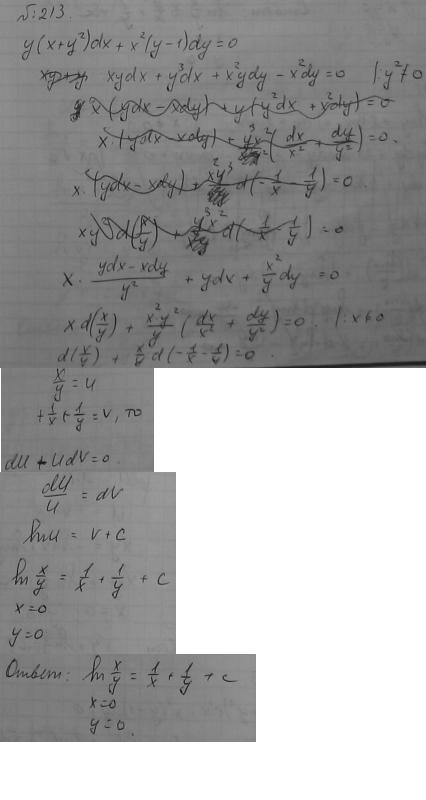 №213.
y(x+y²)dx + x²(y-1)dy=0
xydx + y³dx + x²ydy - x²dy = 0 |:y²≠0
x(ydx - xdy) + y(y²dx + x²dy) = 0
x·(ydx - xdy) + (dx/x² + dy/y²) = 0.
x·(ydx - xdy) + d(-1/x - 1/y) = 0.
xy² d(x/y) + d(-1/x - 1/y) = 0
x · (ydx - xdy)/y² + ydx + x²/y dy = 0
x d(x/y) + x²y²/y (dx/x² + dy/y²) = 0. |:x≠0
d(x/y) + x/y d(-1/x - 1/y) = 0.
x/y = u
+1/x + 1/y = v, то
du - u dv = 0.
du/u = dv
ln u = v + c
ln x/y = 1/x + 1/y + c
x=0
y=0
Ответ: ln x/y = 1/x + 1/y + c
x=0
y=0.